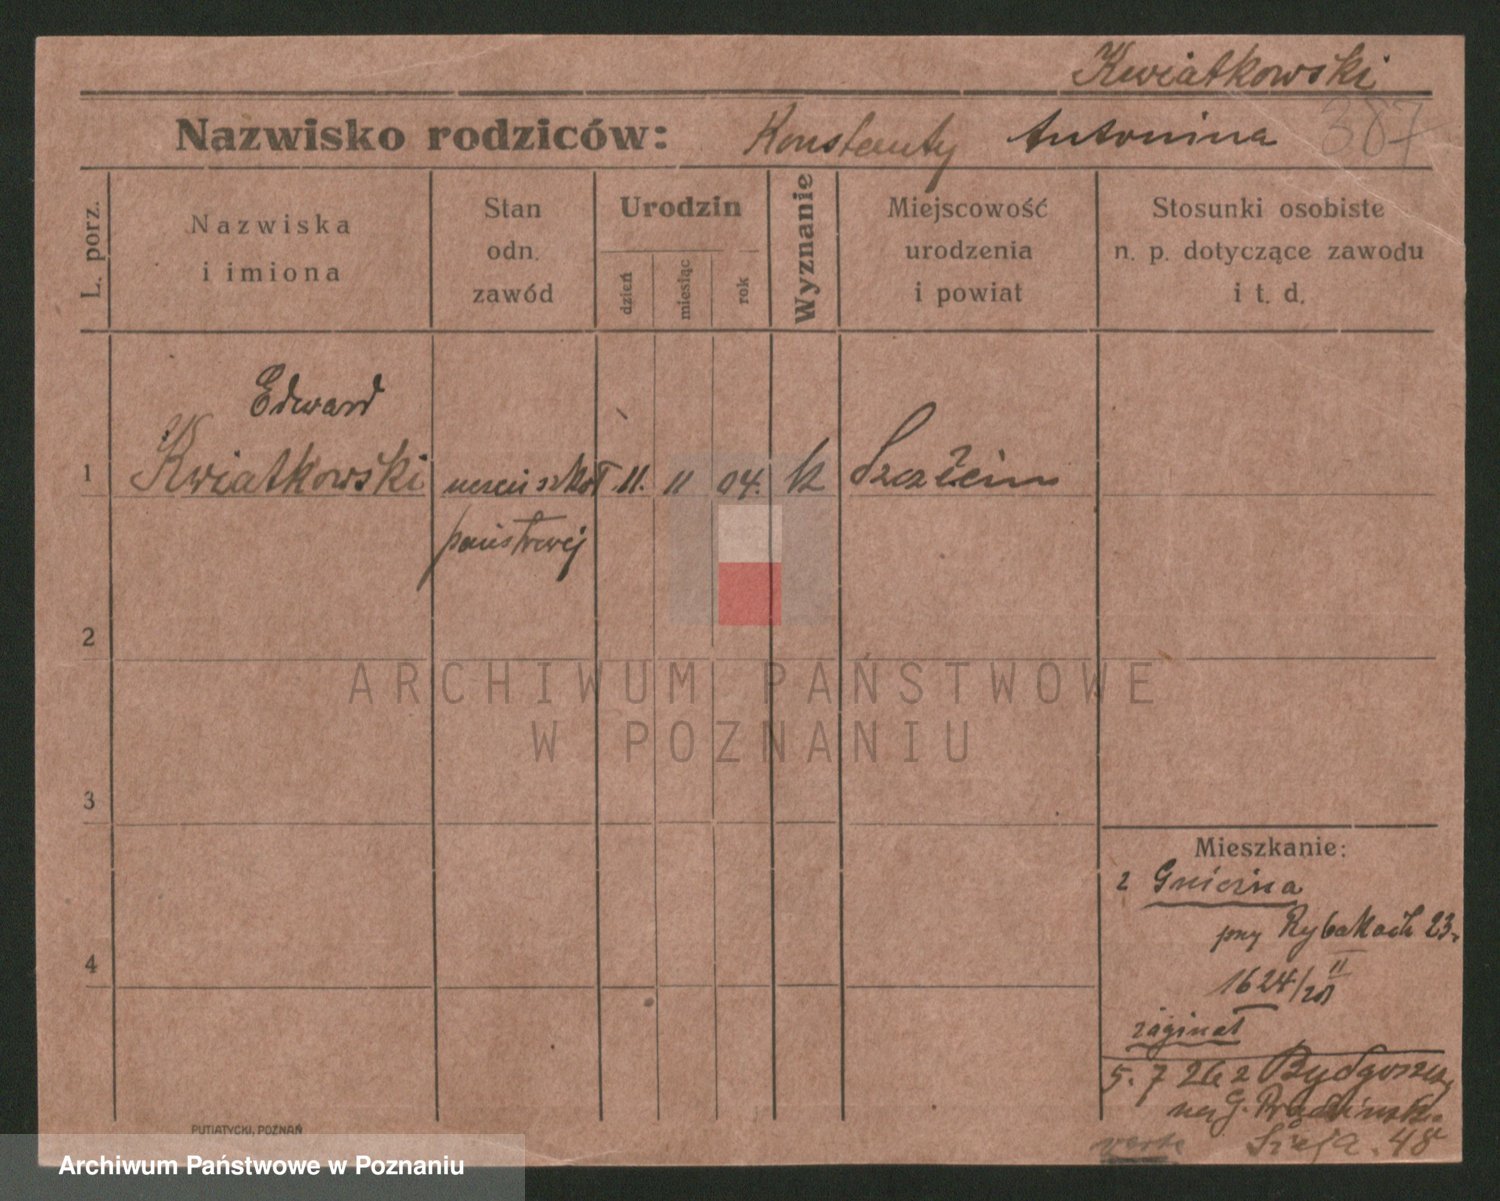 Kwiatkowski
387
Nazwisko rodziców: Konstanty Antonina
L. porz.
Nazwiska
i imiona
Stan
odn.
zawód
Urodzin
dzień
miesiąc
rok
Wyznanie
Miejscowość
urodzenia
i powiat
Stosunki osobiste
n. p. dotyczące zawodu
i t. d.
Edward
1 Kwiatkowski uczeń szkoł 11. 11 04. k
państwej
2
ARCHIWUM PAŃSTWOWE
W POZNANIU
3
Mieszkanie:
z Gniezna
przy Rybakach 23.
4
1624/ II
zaginął
5. 7 26 z Bydgoszczy
na G.
verte 48
PUTIATYCKI, POZNAŃ
Archiwum Państwowe w Poznaniu